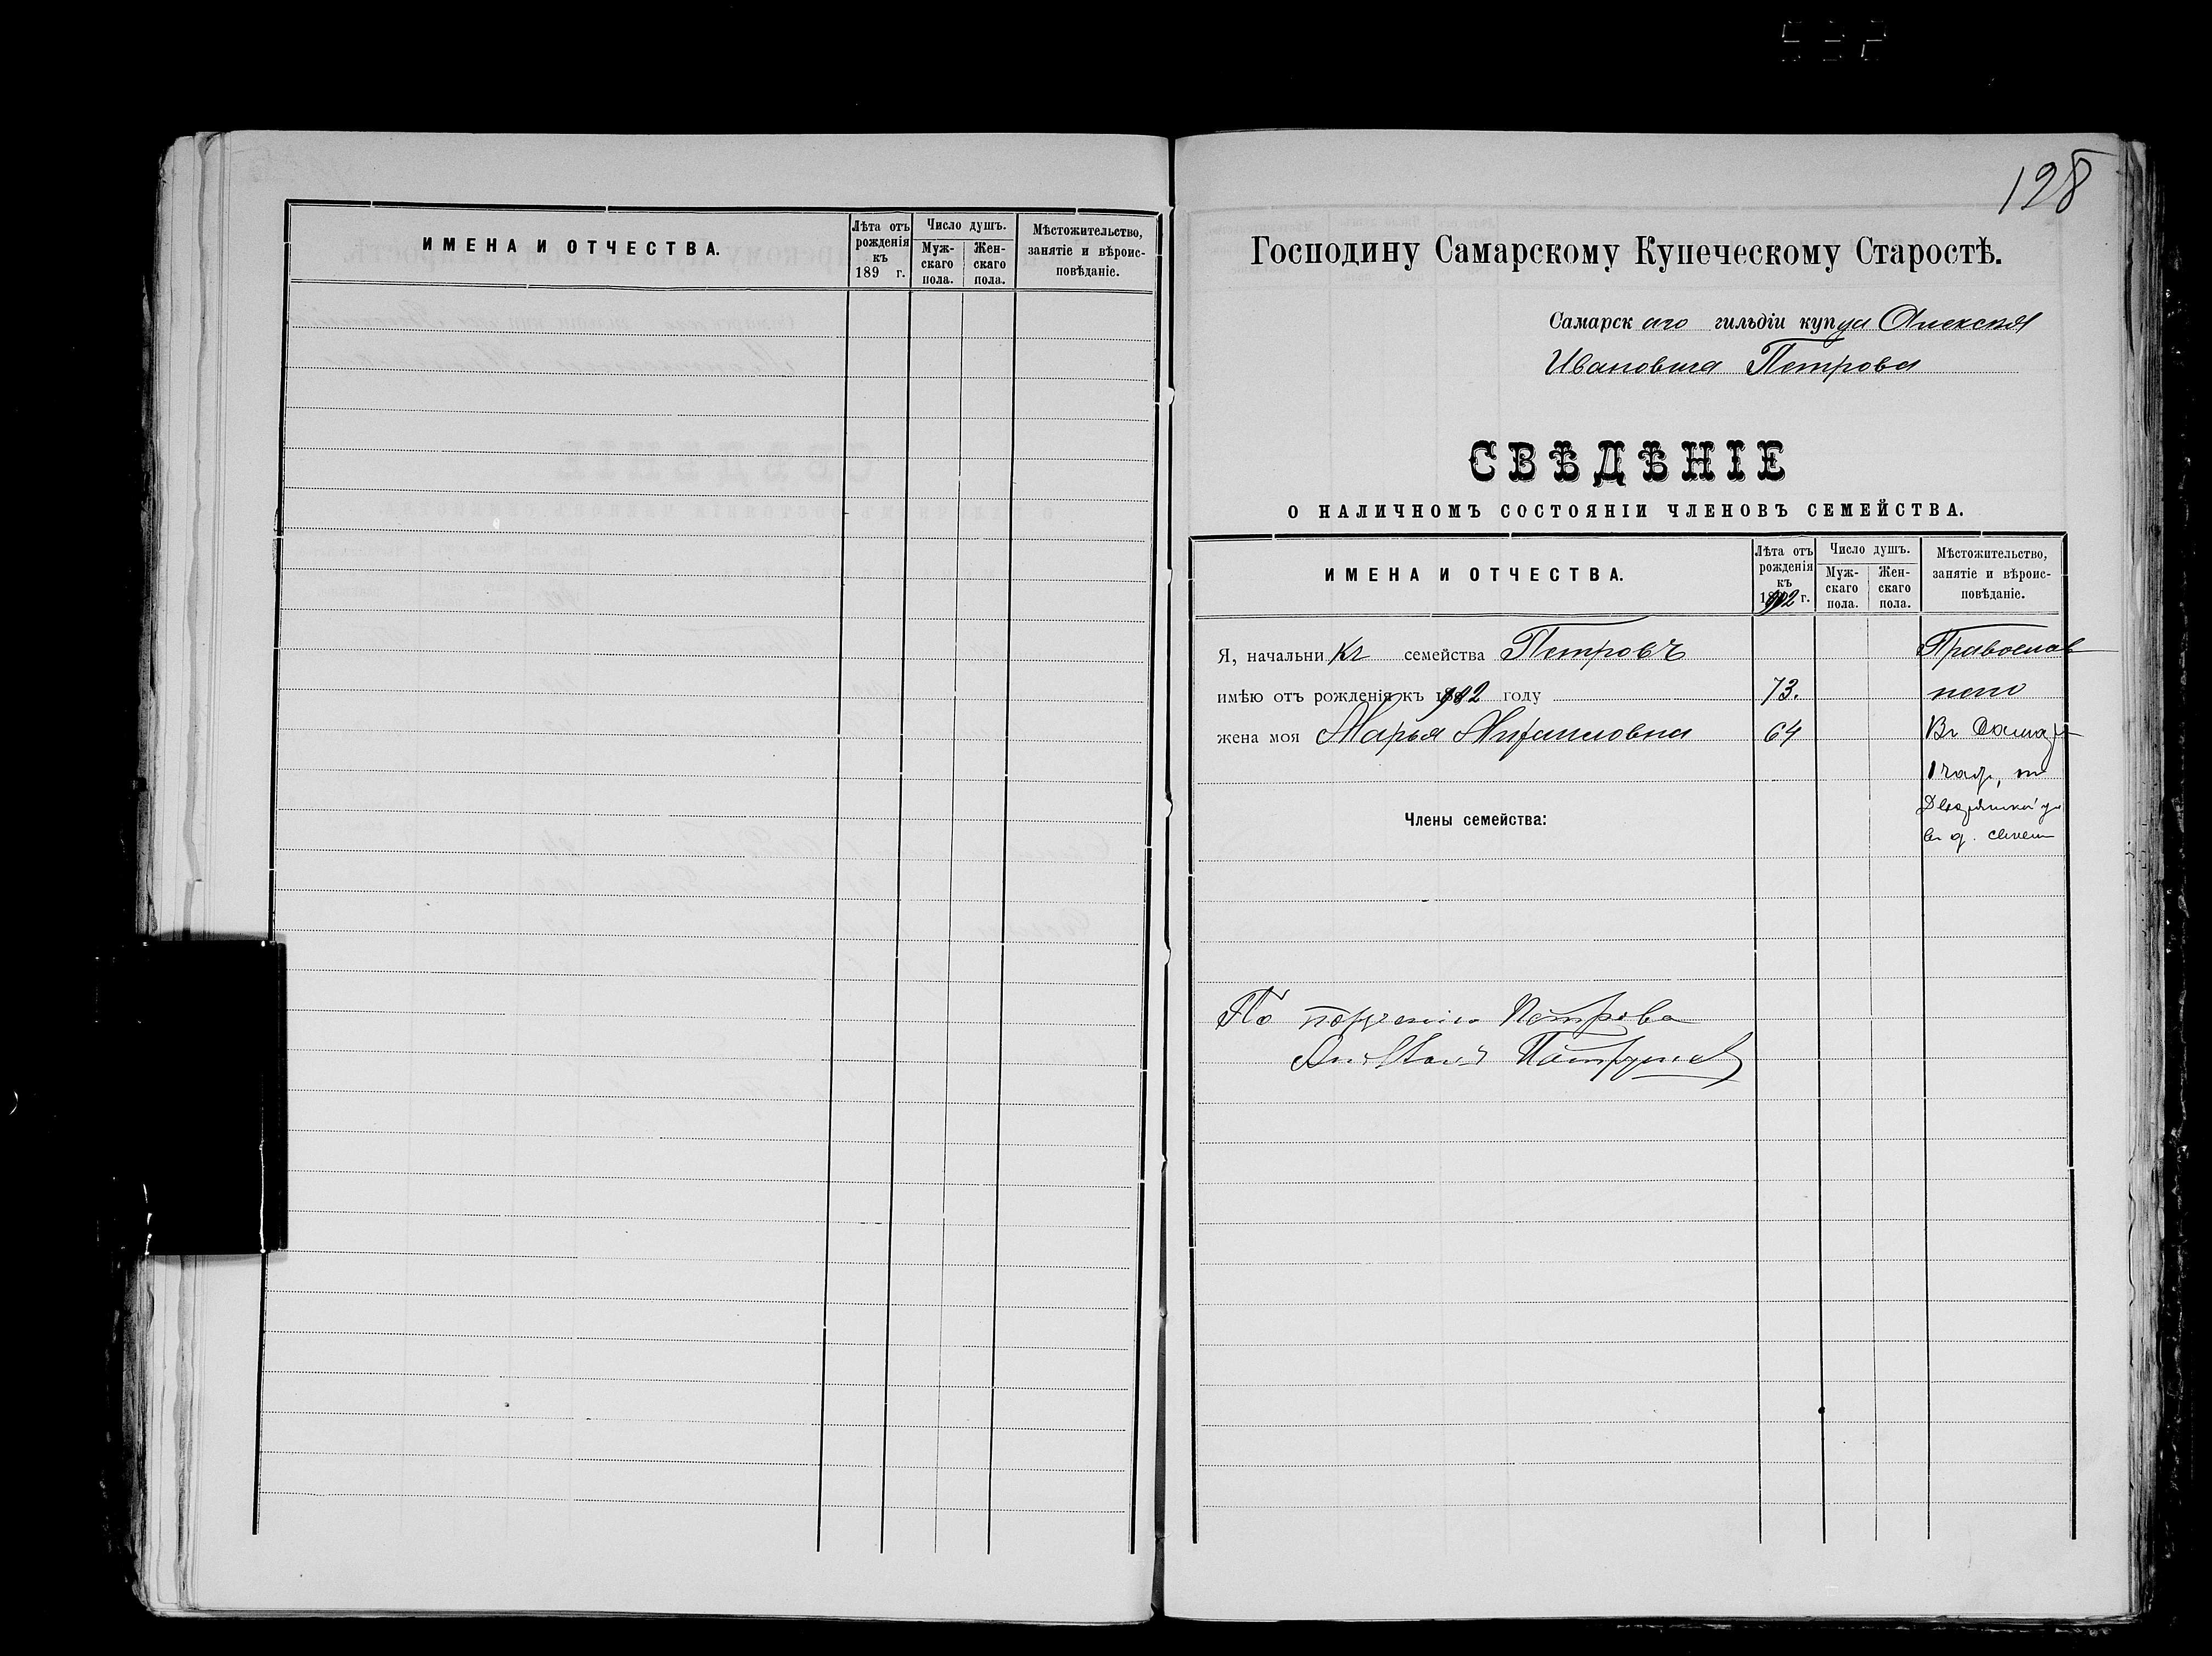 ИМЕНА И ОТЧЕСТВА.
Лѣта отъ рожденія къ 189 г.
Число душъ.
Муж-скаго пола.
Жен-скаго пола.
Мѣстожительство, занятіе и вѣроис-повѣданіе.
128
Господину Самарскому Купеческому Старостѣ.
Самарскаго гильдіи купца Алексѣя
Ивановича Петрова
СВѢДѢНІЕ
О НАЛИЧНОМЪ СОСТОЯНІИ ЧЛЕНОВЪ СЕМЕЙСТВА.
ИМЕНА И ОТЧЕСТВА.
Лѣта отъ рожденія къ 1902 г.
Число душъ.
Муж-скаго пола.
Жен-скаго пола.
Мѣстожительство, занятіе и вѣроис-повѣданіе.
Я, начальникъ семейства Петровъ Православ
имѣю отъ рожденія къ 1902 году 73. наго
жена моя Марья 64 Въ Самарѣ
1 част, по
Дворянской ул
въ д. своем
Члены семейства:
По порученію Петрова